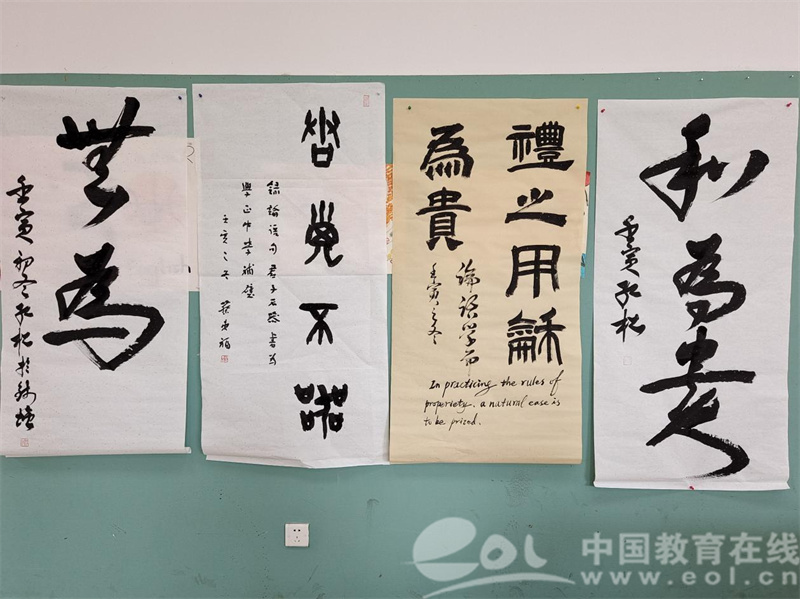 無為
壬寅初冬
君子不器
錄論語句君子不器書為
學正中學補壁
壬寅之冬
禮之用龢
為貴
論語学而
壬寅之冬
In practicing the rules of
properiety. a natural ease is
to be prized.
和為贵
壬寅
eol 中国教育在线
www.eol.cn